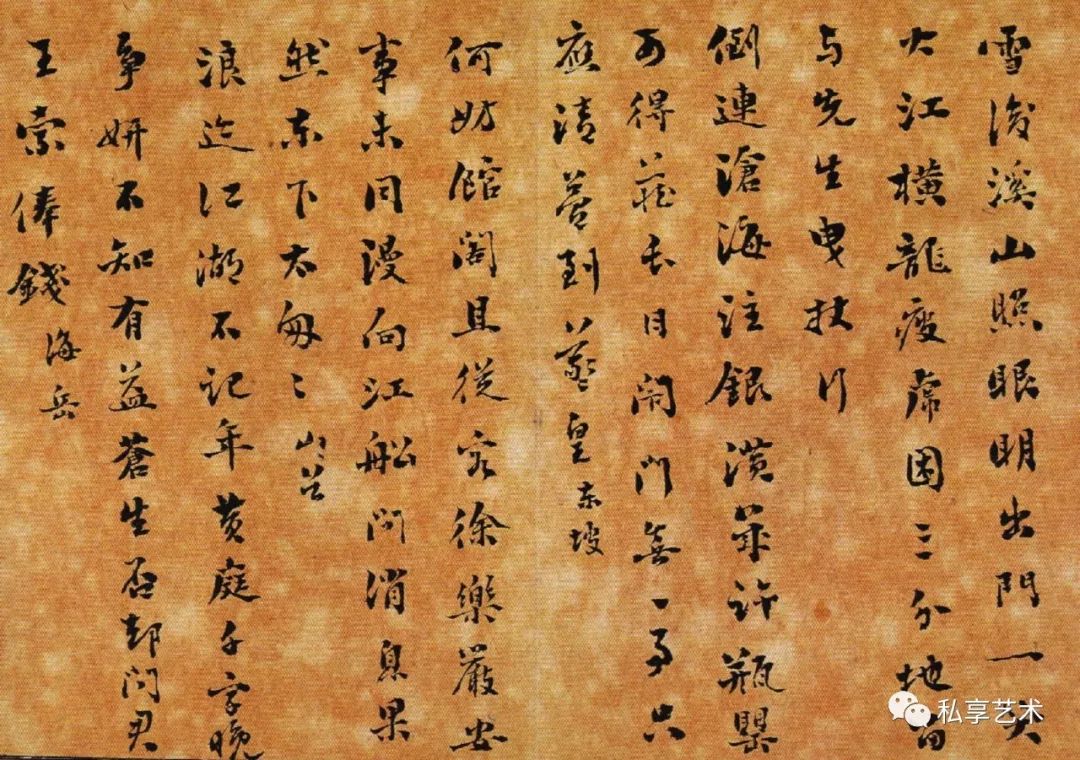 雪後溪山照眼明出門一笑
大江橫龍疲虎困三分地留
与先生曳杖行
倒連滄海注銀潢許瓶罌
可得藏長日閉門無一事只
應清夢到羲皇 東坡
何妨館閣且從容徐樂嚴安
事未同漫向江船問消息果
然東下太匆〻 山谷
浪迹江湖不記年黃庭千字晚
争妍不知有益蒼生否却問君
王索俸錢 海岳
私享艺术